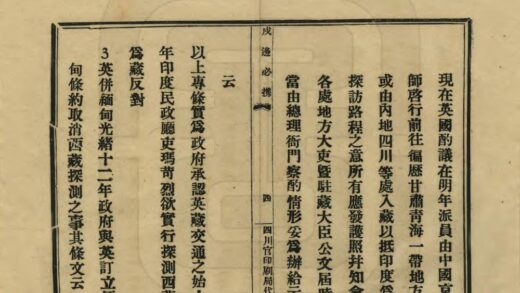 現在英國酌議在明年派員由中國京
師啓行前往徧歷甘肅青海一帶地方
或由內地四川等處入藏以抵印度爲
探訪路程之意所有應發護照幷知會
各處地方大吏曁駐藏大臣公文屆時
當由總理衙門察酌情形妥爲辦給云
戍邊必携
四
四川官印刷局代
云
以上專條實爲政府承認英藏交通之始
年印度民政廳吏瑪苛烈欲實行探測西
爲藏反對
3英併緬甸光緖十二年政府與英訂立
甸條約取消西藏探測之事其條文云